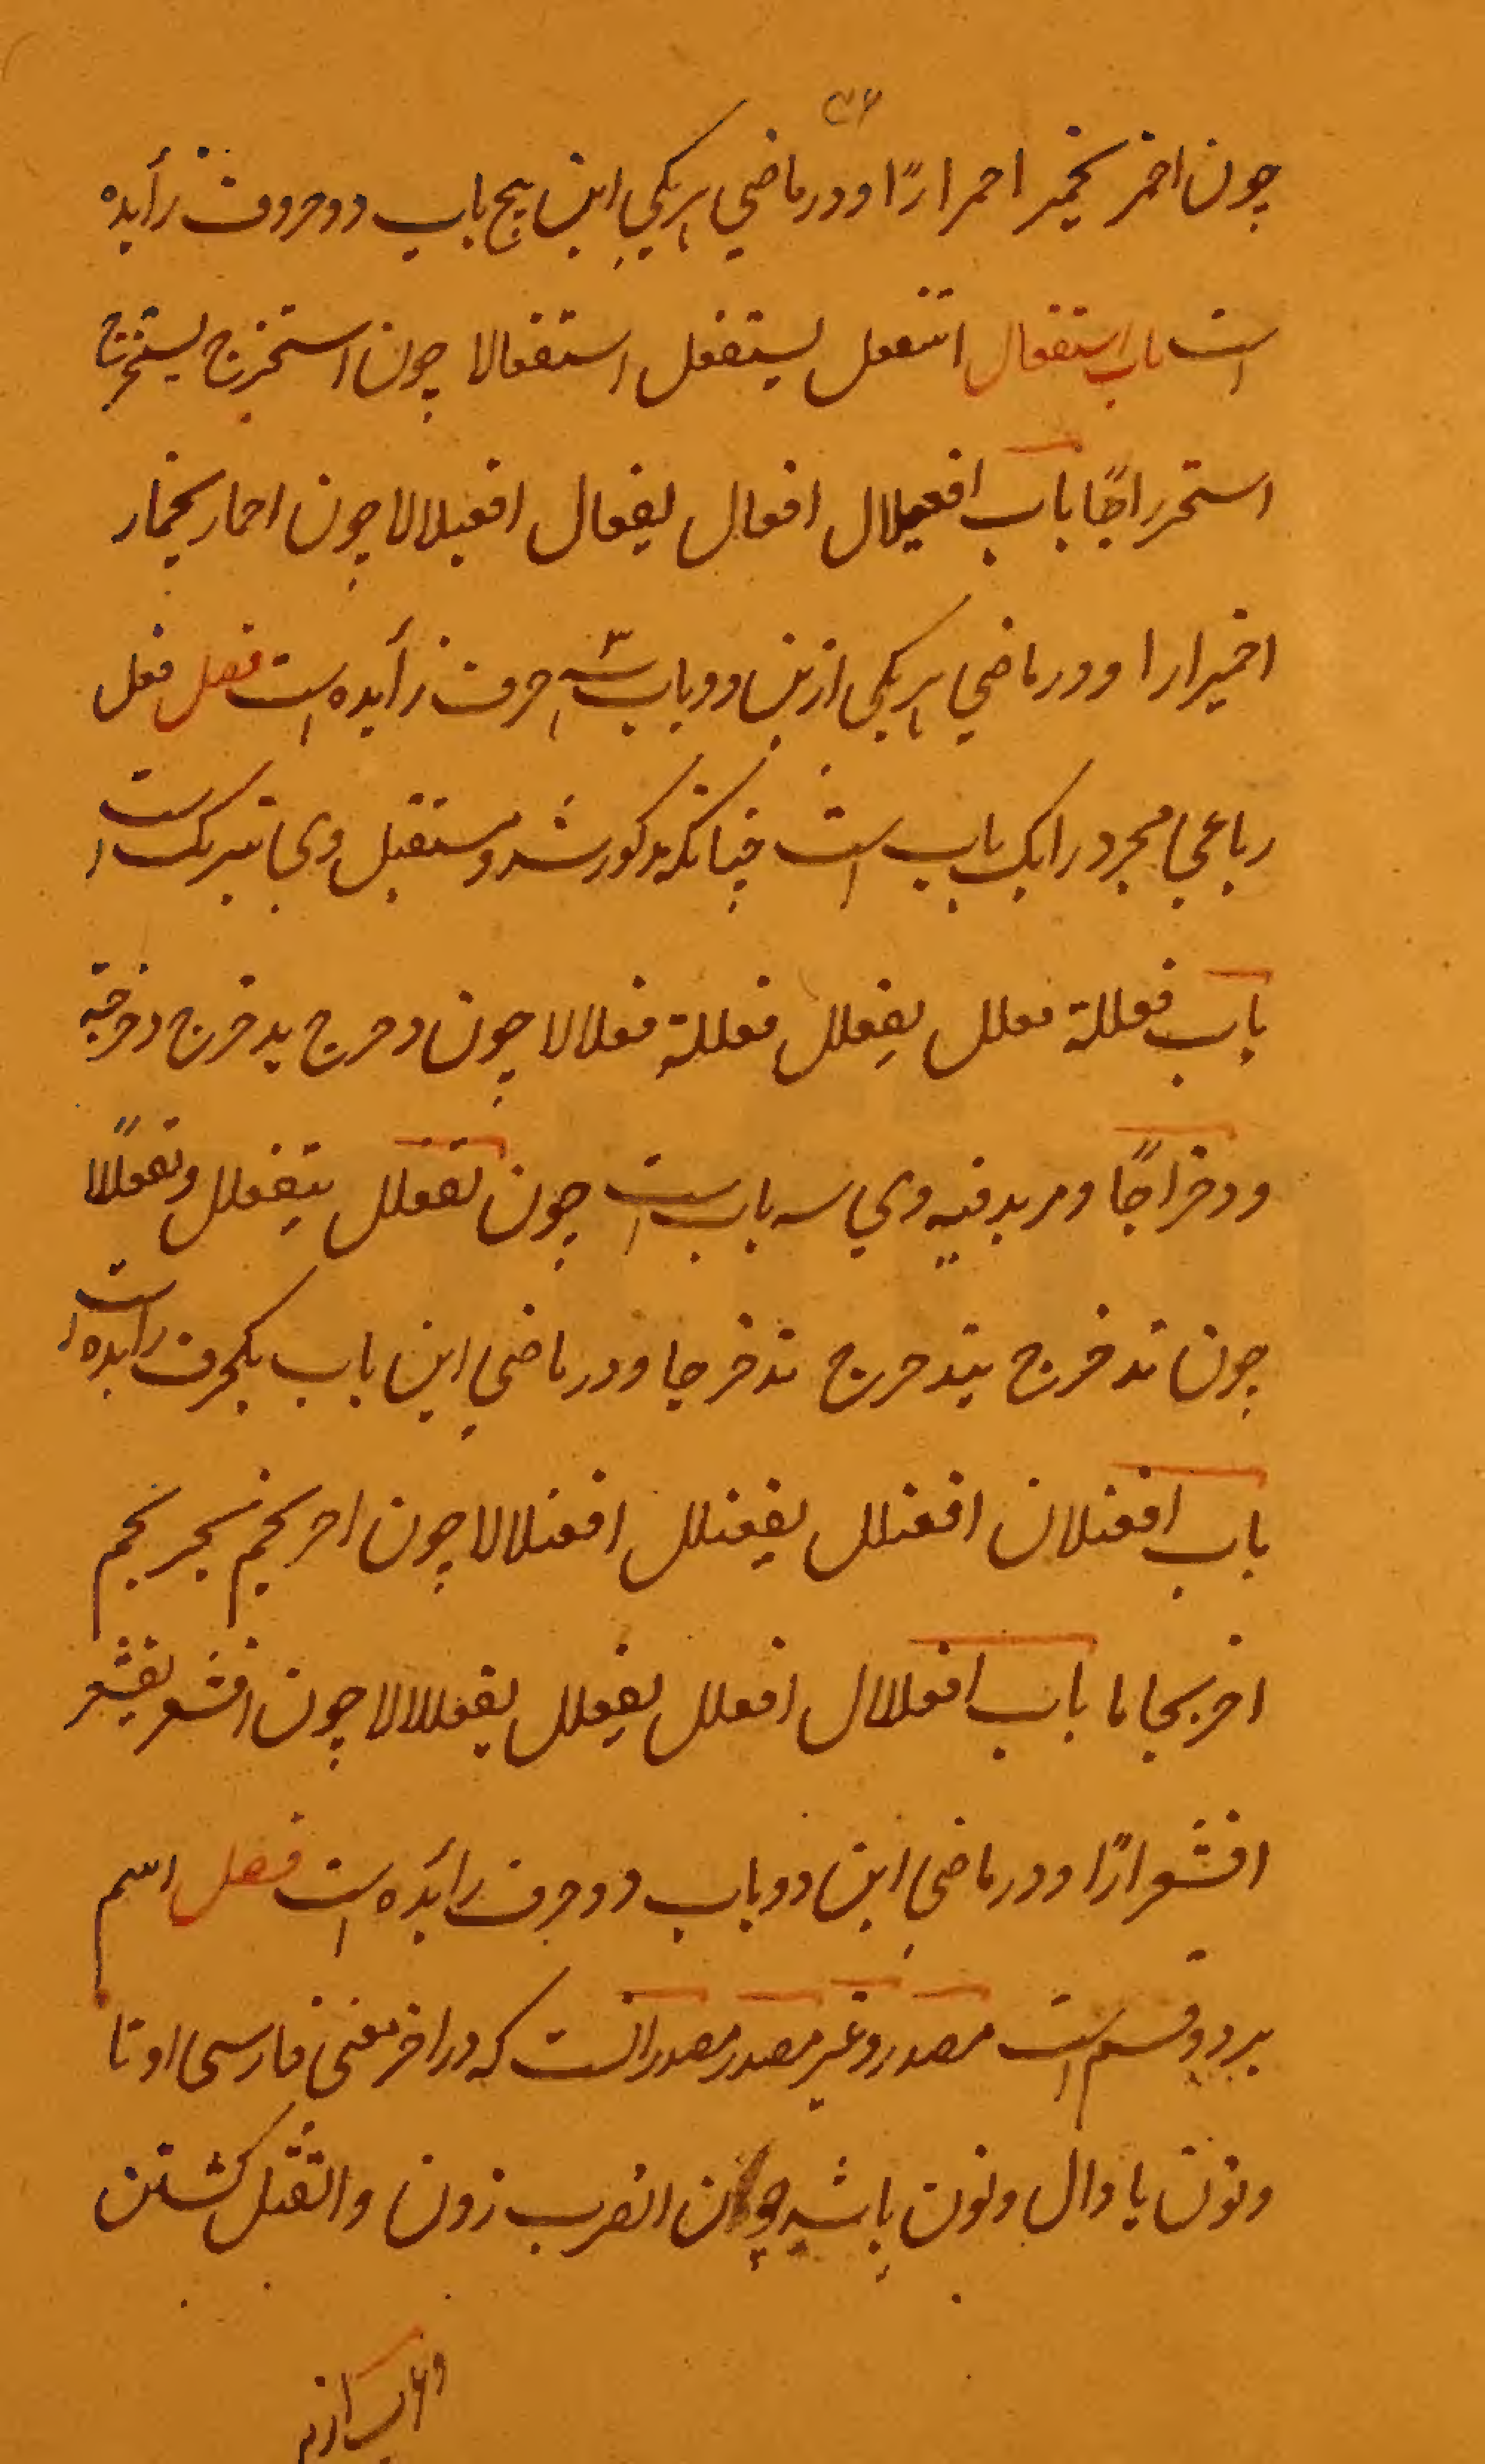 چون احمر یحمر احمرارًا و در ماضی هر یکی این پنج باب دو حروف زأیده
است باب استفعال استفعل یستفعل استفعالا چون استخرج یستخرج
استخراجًا باب افعیلال افعال یفعال افعیلالا چون احمار یحمار
احمیرارا و در ماضی هر یکی ازین دو باب سه حرف زأیده است فصل فعل
رباعی مجرد را یک باب است چنانکه مذکور شد و مستقبل وی نیز یک است
باب فعللة فعلل یفعلل فعللة فعلالا چون دحرج یدحرج دحرجة
و دحراجًا و مزید فیه وی سه باب است چون تفعلل یتفعلل و تفعللًا
چون تدحرج یتدحرج تدحرجا و در ماضی این باب یکحرف زایده است
باب افعنلان افعنلل یفعنلل افعنلالا چون احرنجم یحرنجم
احرنجاما باب افعلال افعلل یفعلل یفعلالا چون اقشعر یقشعر
اقشعرارًا و در ماضی این دو باب دو حرف زائده است فصل اسم
بر دو قسم است مصدر و غیر مصدر مصدر انست که در اخر معنی فارسی او تا
و نون یا دال و نون باشد چون الضرب زدن والقتل کشتن